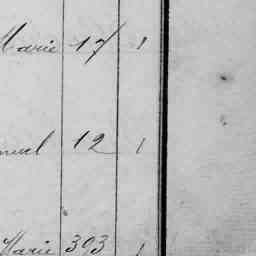 Marie 17 1
nuel 12 1
Marie 393 1